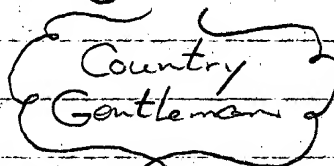 Country
Gentleman